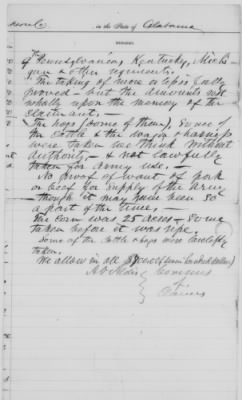 in the State of Alabama
REMARKS.
of Pennsylvania, Kentucky, Michi-
gan & other regiments.
The taking of more or less is fully
proved - but the amounts rest
wholly upon the memory of the
claimant. -
The hogs (some of them), some of
the cattle & the wagon & harness
were taken we think without
authority - & not lawfully
taken for army use.
No proof of want of pork
or beef for supply of the army
- though it may have been so
a part of the time.
The corn was 25 acres - some
taken before it was ripe.
Some of the cattle & hogs were lawfully
taken.
We allow in all $700 (seven hundred dollars)
A.O. Aldis
Comrs
of
Claims